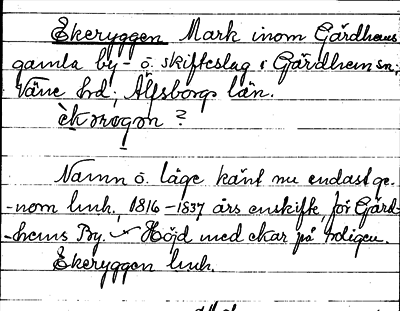 Ekeryggen Mark inom Gärdhems
gamla by- o. skifteslag i Gärdhem sn,
Väne hd; Älfsborgs län.
èkrøgøn?
Namn o. läge känt nu endast ge-
-nom lmh. 1816-1837 års enskifte, för Gärd-
-hems By. Höjd med ekar på troligen.
Ekeryggen lmh.